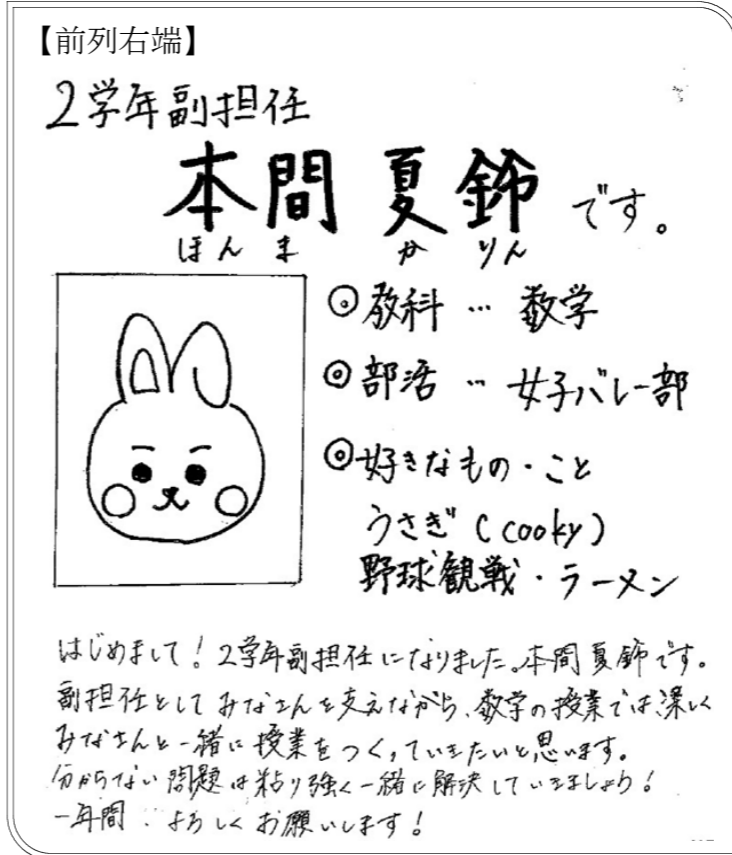 【前列右端】
2学年副担任
本間 夏鈴 です。
ほんま かりん
◎教科 … 数学
◎部活 … 女子バレー部
◎好きなもの・こと
うさぎ (cooky)
野球観戦・ラーメン
はじめまして！2学年副担任になりました。本間夏鈴です。
副担任としてみなさんを支えながら、数学の授業では深く
みなさんと一緒に授業をつくっていきたいと思います。
分からない問題は粘り強く一緒に解決していきましょう！
一年間 よろしくお願いします！